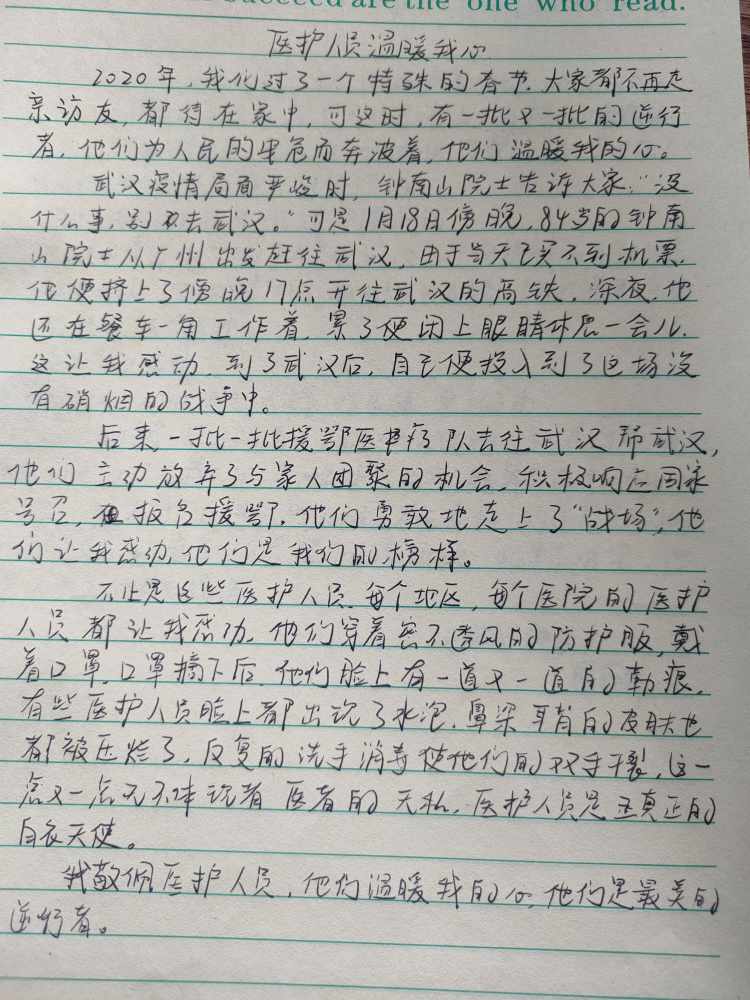 succeed are the one who read.
医护人员温暖我心
2020年,我们过了一个特殊的春节,大家都不再走
亲访友,都待在家中,可这时,有一批又一批的逆行
者,他们为人民的生危而奔波着,他们温暖我的心。
武汉疫情局面严峻时,钟南山院士告诉大家:“没
什么事,别去武汉。”可是1月18日傍晚,84岁的钟南
山院士从广州出发赶往武汉,由于当天已买不到机票,
他便挤上了傍晚17点开往武汉的高铁,深夜,他
还在餐车一角工作着,累了便闭上眼睛休息一会儿,
这让我感动,到了武汉后,自己便投入到了这场没
有硝烟的战争中。
后来,一批一批援鄂医疗队去往武汉帮武汉,
他们主动放弃了与家人团聚的机会,积极响应国家
号召,报名援鄂,他们勇敢地走上了“战场”,他
们让我感动,他们是我们的榜样。
不止是这些医护人员,每个地区,每个医院的医护
人员都让我感动,他们穿着密不透风的防护服,戴
着口罩,口罩摘下后,他们脸上有一道又一道的勒痕,
有些医护人员脸上都出现了水泡,鼻梁耳背的皮肤也
都被压烂了,反复的洗手消毒使他们的双手干裂,这一
点又一点无不体现着医者的无私,医护人员是真正的
白衣天使。
我敬佩医护人员,他们温暖我的心,他们是最美的
逆行者。